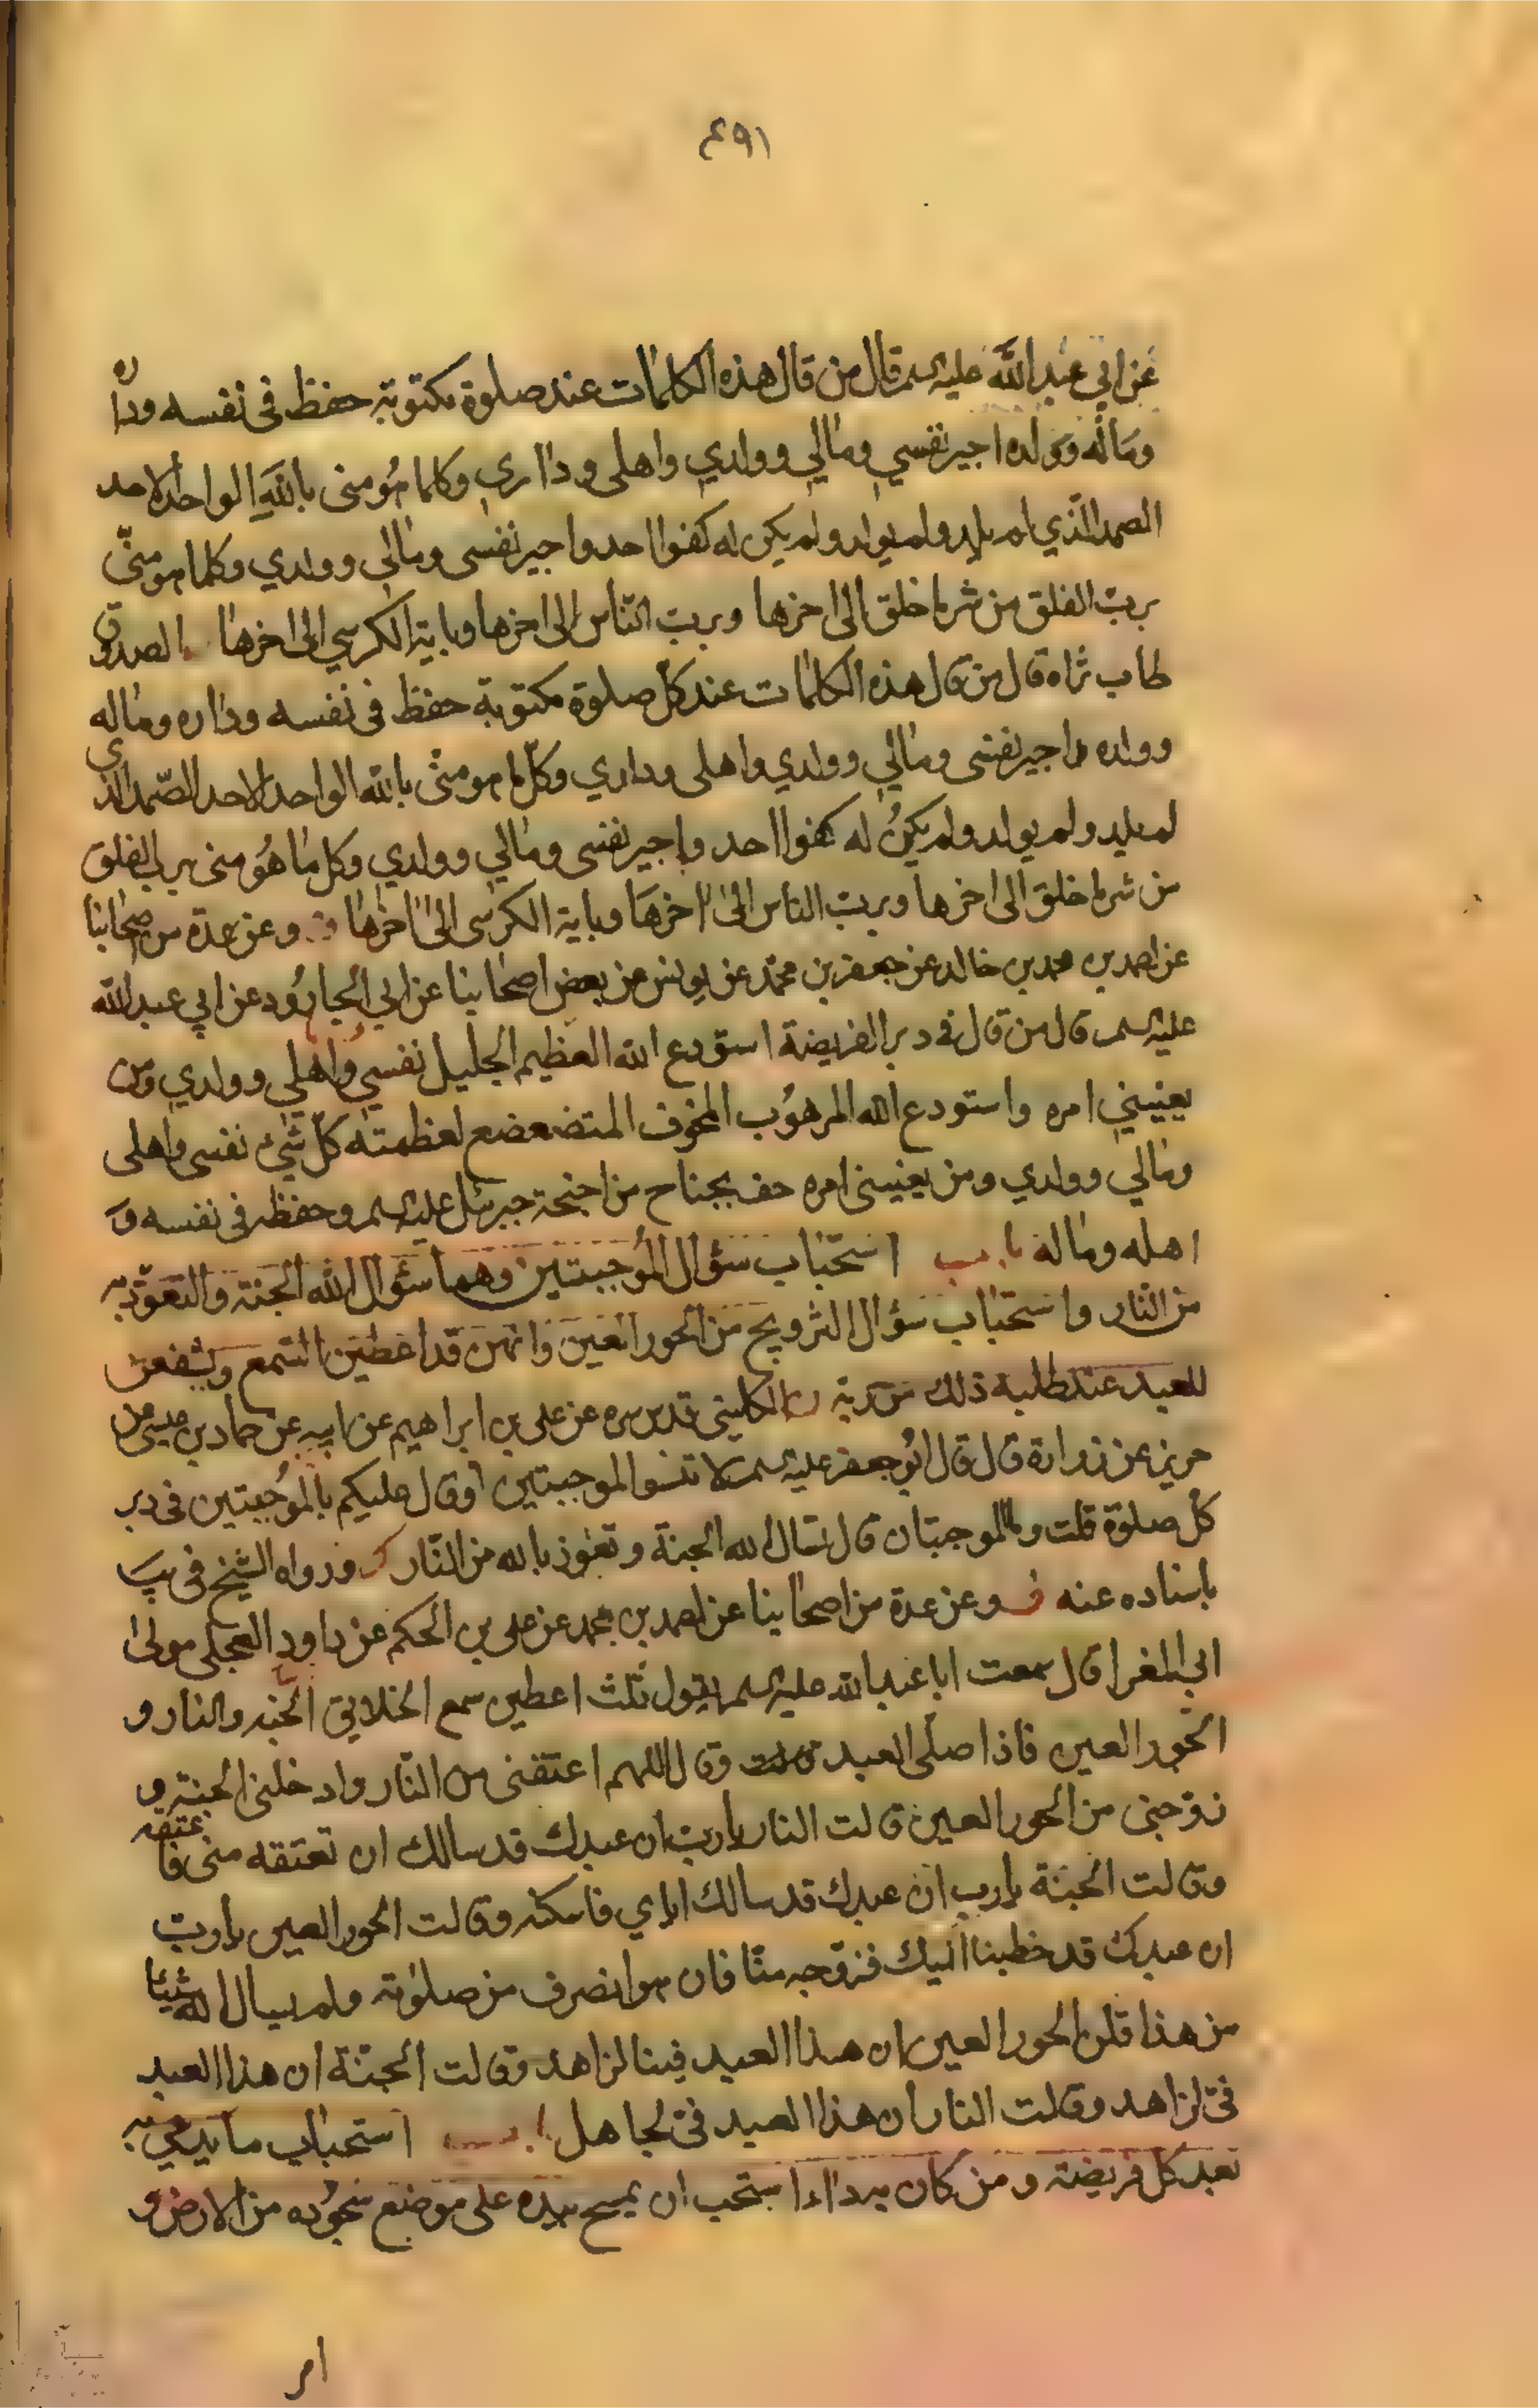 ٤٩١
عن ابي عبد الله عليه السلم قال من قال هذه الكلمات عند صلوة مكتوبة حفظ فى نفسه وداره
وماله وولده اجير نفسي ومالي وولدي واهلى وداري وكلما هو منى بالله الواحد الاحد
الصمد الذي لم يلد ولم يولد ولم يكن له كفوا احد واجير نفسى ومالي وولدي وكلما هو منّي
بربّ الفلق من شر ما خلق الى اخرها وبربّ النّاس الى اخرها وباية الكرسي الى اخرها الصدوق
طاب ثراه قال من قال هذه الكلمات عند كلّ صلوة مكتوبة حفظ فى نفسه وداره وماله
وولده اجير نفسى ومالي وولدي واهلى وداري وكلّ ما هو منّى بالله الواحد الاحد الصّمد الذي
لم يلد ولم يولد ولم يكنُ له كفوا احد واجير نفسى ومالي وولدي وكل ما هُو منى برب الفلق
من شر ما خلق الى اخرها وبربّ الناس الى اخرهَا وباية الكرسى الى اخرها وعن عدة من اصحابنا
عن احمد بن محمد بن خالد عن جعفر بن محمّد عن يونس عن بعض اصحابنا عن ابي الجارُود عن ابي عبد الله
عليه السلم قال من قال فى دبر الفريضة استودع الله العظيم الجليل نفسي واهلي وولدي ومن
يعنيني امره واستودع الله المرهوُب المخوف المتضعضع لعظمته كلّ شيئ نفسى واهلى
ومالي وولدي ومن يعنيني امره حف بجناح من اجنحة جبرئيل عليه السلم وحفظ فى نفسه و
اهله وماله باب استحباب سؤال المُوجبتين وهما سؤال الله الجنة والتعوّذ به
من النّار واستحباب سؤال التزويج من الحور العين وانهن قد اعطين السّمع ويشفعن
للعبد عند طلبه ذلك من ربّه الكلينى قدس سره عن على بن ابراهيم عن ابيه عن حماد بن عيسى عن
حريز عن زرارة قال قال ابُو جعفر عليه السلم لا تنسوا الموجبتين او قال عليكم بالمُوجبتين فى دبر
كل صلوة قلت وما الموجبتان قال تسال الله الجنة وتعوذ بالله من النّار ورواه الشيخ فى يب
باسناده عنه وعن عدة من اصحابنا عن احمد بن محمد عن على بن الحكم عن داود العجلى مولى
ابي المغرا قال سمعت ابا عبد الله عليه السلم يقول ثلث اعطين سمع الخلايق الجنه والنار و
الحور العين فاذا صلّى العبد وقال اللهم اعتقنى من النّار وادخلنى الجنة و
زوّجنى من الحور العين قالت النار يا ربّ ان عبدك قد سالك ان تعتقه منى فاعتقه
وقالت الجنة يا رب ان عبدك قد سالك اياي فاسكنه وقالت الحور العين يا ربّ
ان عبدك قد خطبنا اليك فزوّجه منّا فان هو انصرف من صلوته ولم يسال الله شيئا
من هذا قلن الحور العين ان هذا العبد فينا لزاهد وقالت الجنّة ان هذا العبد
فيّ لزاهد وقالت النار ان هذا العبد فيّ لجاهل باب استحباب ما يدعى به
بعد كل فريضة ومن كان به داء استحب ان يمسح بيده على موضع سجُوده من الارض و
امر